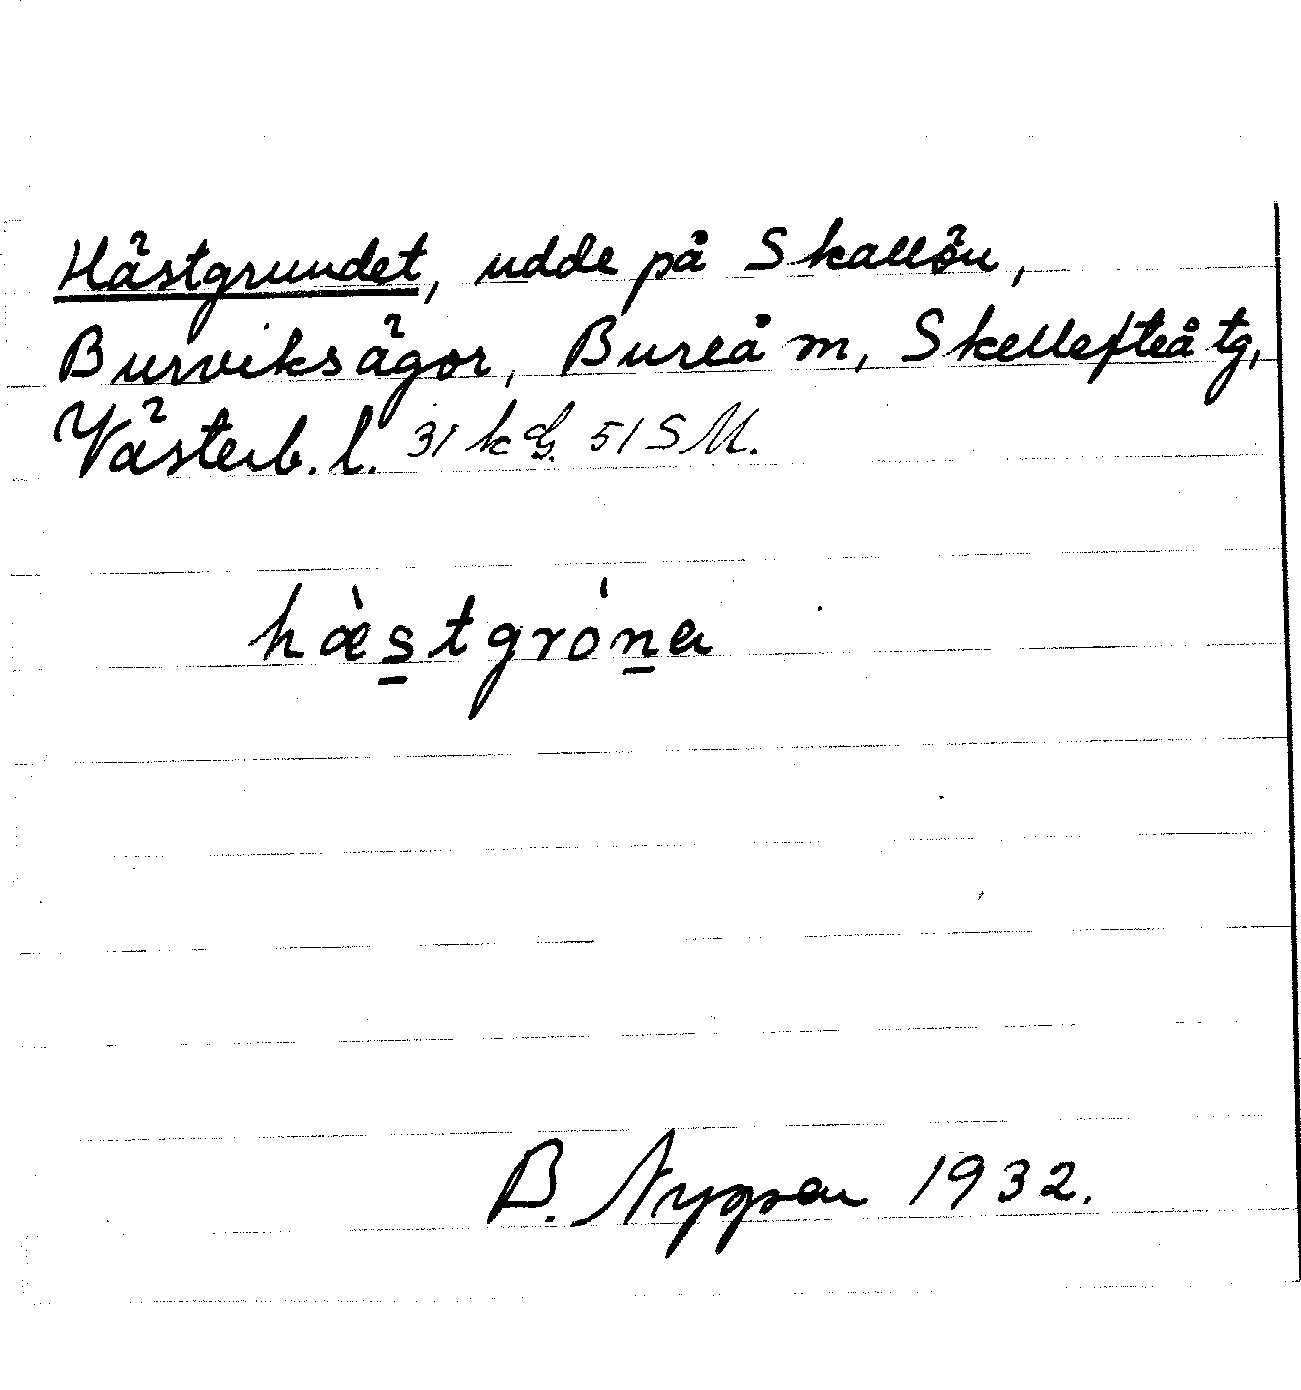 Hästgrundet, udde på Skallön,
Burviksägor, Bureå m, Skellefteå tg,
Västerb. l. 31 k G. 51 S M.
hæ̀stgróna
B. Nygren 1932.